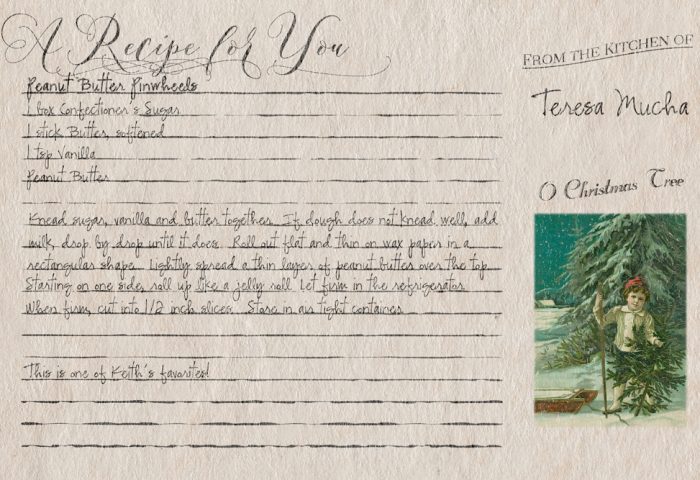 A Recipe for You
Peanut Butter Pinwheels
1 box Confectioner's Sugar
1 stick Butter, softened
1 tsp Vanilla
Peanut Butter
Knead sugar, vanilla and butter together. If dough does not knead well, add
milk, drop by drop until it does. Roll out flat and thin on wax paper in a
rectangular shape. Lightly spread a thin layer of peanut butter over the top.
Starting on one side, roll up like a jelly roll. Let firm in the refrigerator.
When firm, cut into 1/2 inch slices. Store in air tight container.
This is one of Keith's favorites!
FROM THE KITCHEN OF
Teresa Mucha
O Christmas Tree